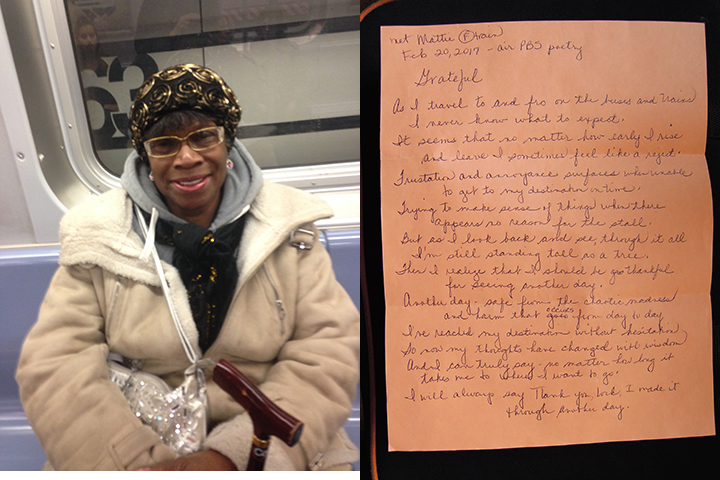 63
met Mattie (F) train
Feb 20, 2017 - air PBS poetry
Grateful
As I travel to and fro on the buses and trains
I never know what to expect.
It seems that no matter how early I rise
and leave I sometimes feel like a reject.
Frustation and annoyance surfaces when unable
to get to my destination on time.
Trying to make sense of things when there
appears no reason for the stall.
But as I look back and see, through it all
I'm still standing tall as a tree.
Then I realize that I should be so thankful
for seeing another day.
Another day - safe from the chaotic madness
occurs
and harm that goes from day to day
I've reached my destination without hesitation
So now my thoughts have changed with wisdom
And I can truly say - no matter how long it
takes me to where I want to go.
I will always say Thank you, I made it
through another day.